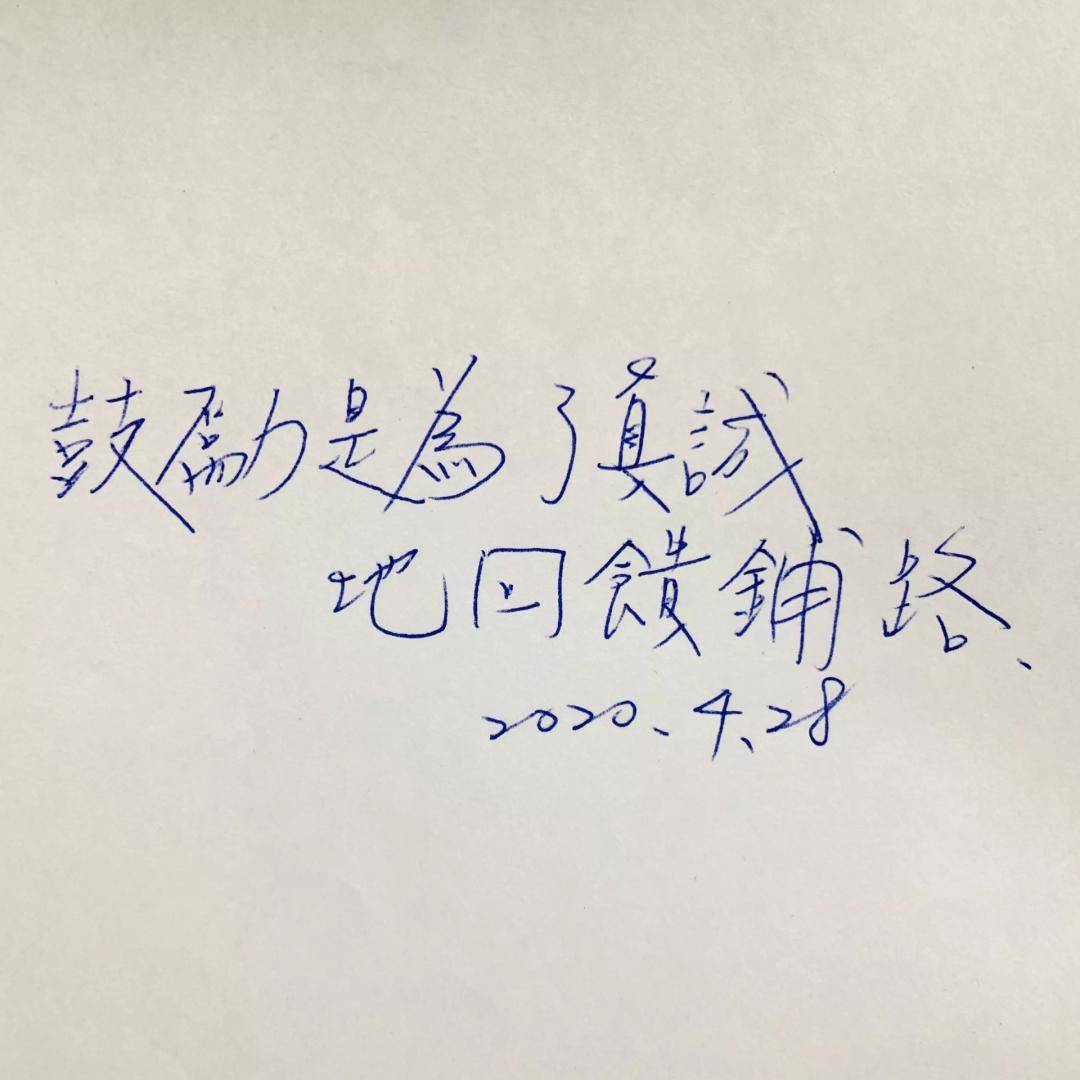 鼓勵是為了真誠
地回饋鋪路、
2020.4.28